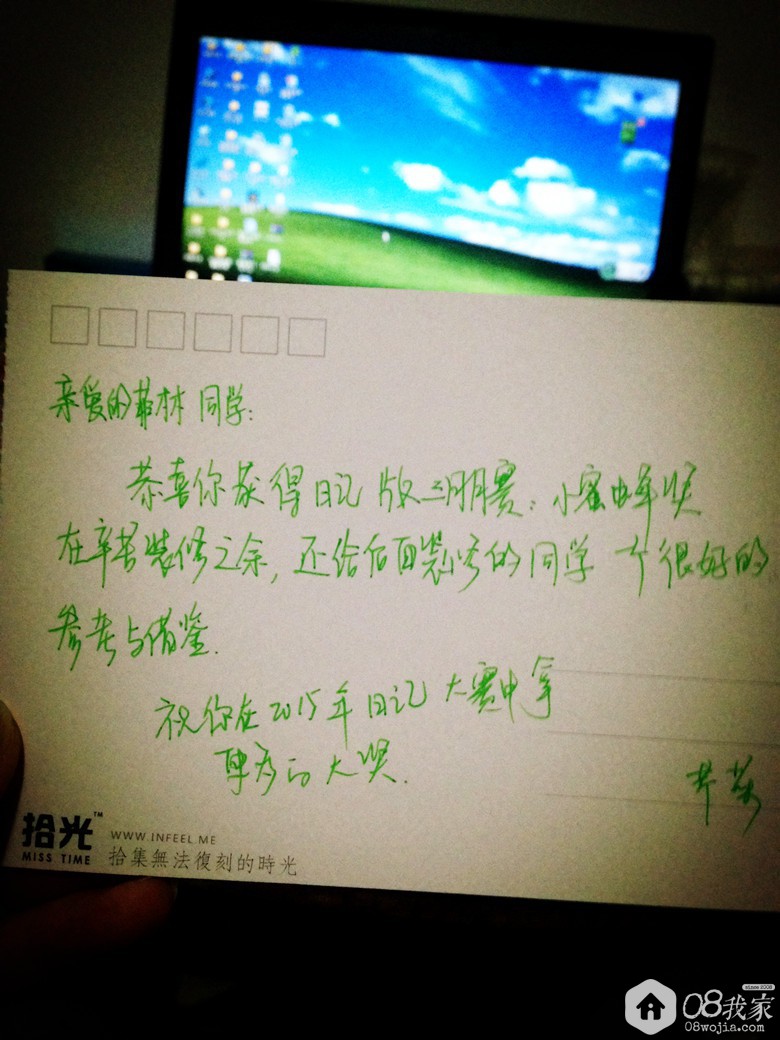 亲爱的菲林同学:
恭喜你获得日记版三月月赛:小蜜蜂奖
在辛苦装修之余,还给后面装修的同学一个很好的
参考与借鉴.
祝你在2015年日记大赛中拿
的大奖.
拾光™
MISS TIME
WWW.INFEEL.ME
拾集無法復刻的時光
since 2008
08我家
08wojia.com